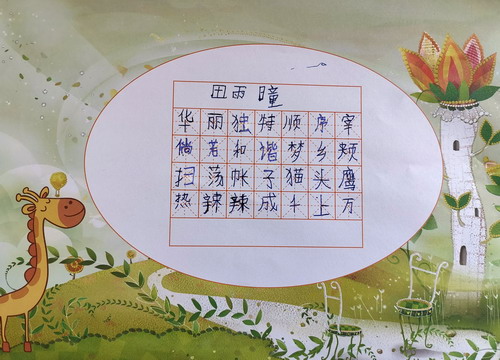 田雨瞳
华丽独特顺序宰
倘若和谐梦乡颊
扫荡帐子猫头鹰
热辣辣成千上万